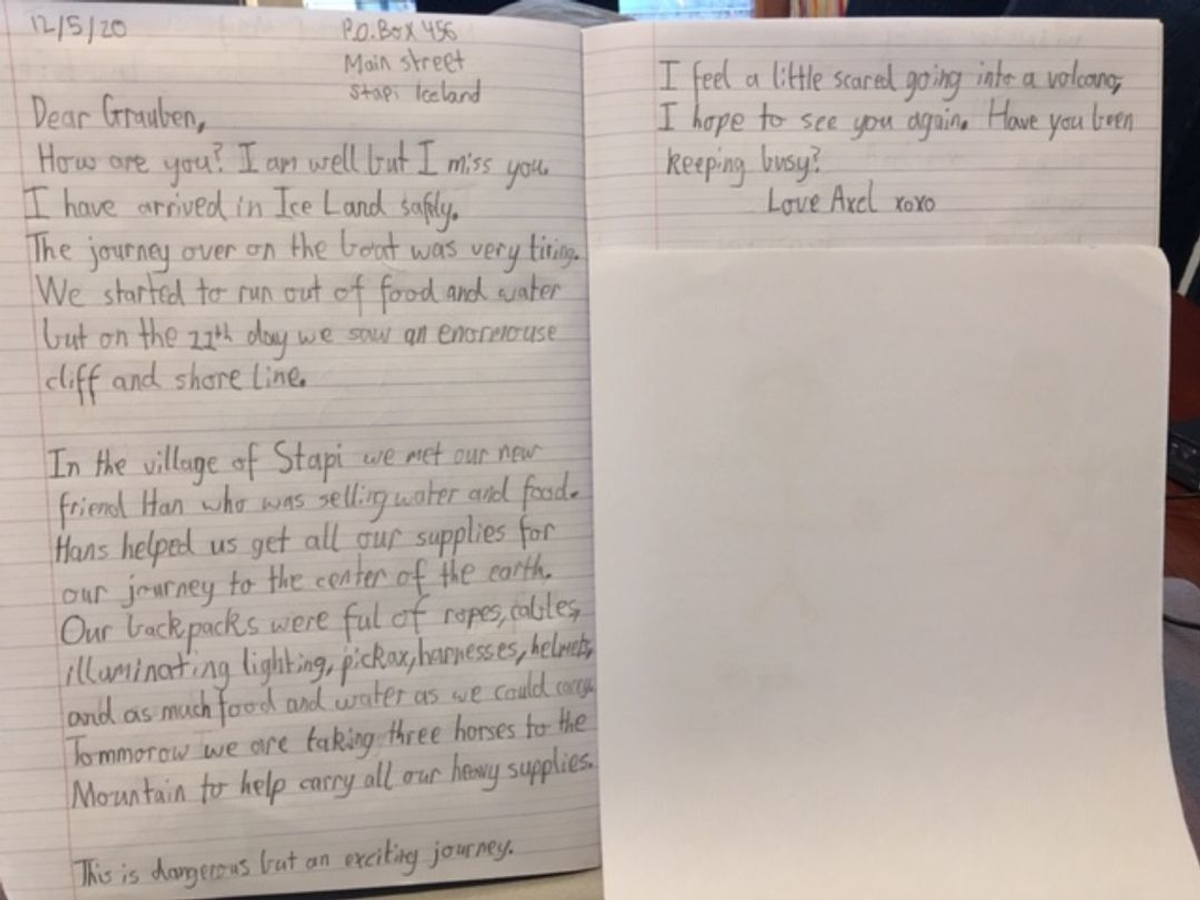 12/5/20
P.O.Box 456
Main street
Stapi Iceland
Dear Grauben,
How are you? I am well but I miss you.
I have arrived in Ice Land safely.
The journey over on the boat was very tiring.
We started to run out of food and water
but on the 11th day we saw an enormouse
cliff and shore line.
In the village of Stapi we met our new
friend Han who was selling water and food.
Hans helped us get all our supplies for
our journey to the center of the earth.
Our backpacks were ful of ropes, cables,
illuminating lighting, pickax, harnesses, helmets,
and as much food and water as we could carry.
Tommorow we are taking three horses to the
Mountain to help carry all our heavy supplies.
This is dangerous but an exciting journey.
I feel a little scared going into a volcano,
I hope to see you again. Have you been
keeping busy?
Love Axel xoxo